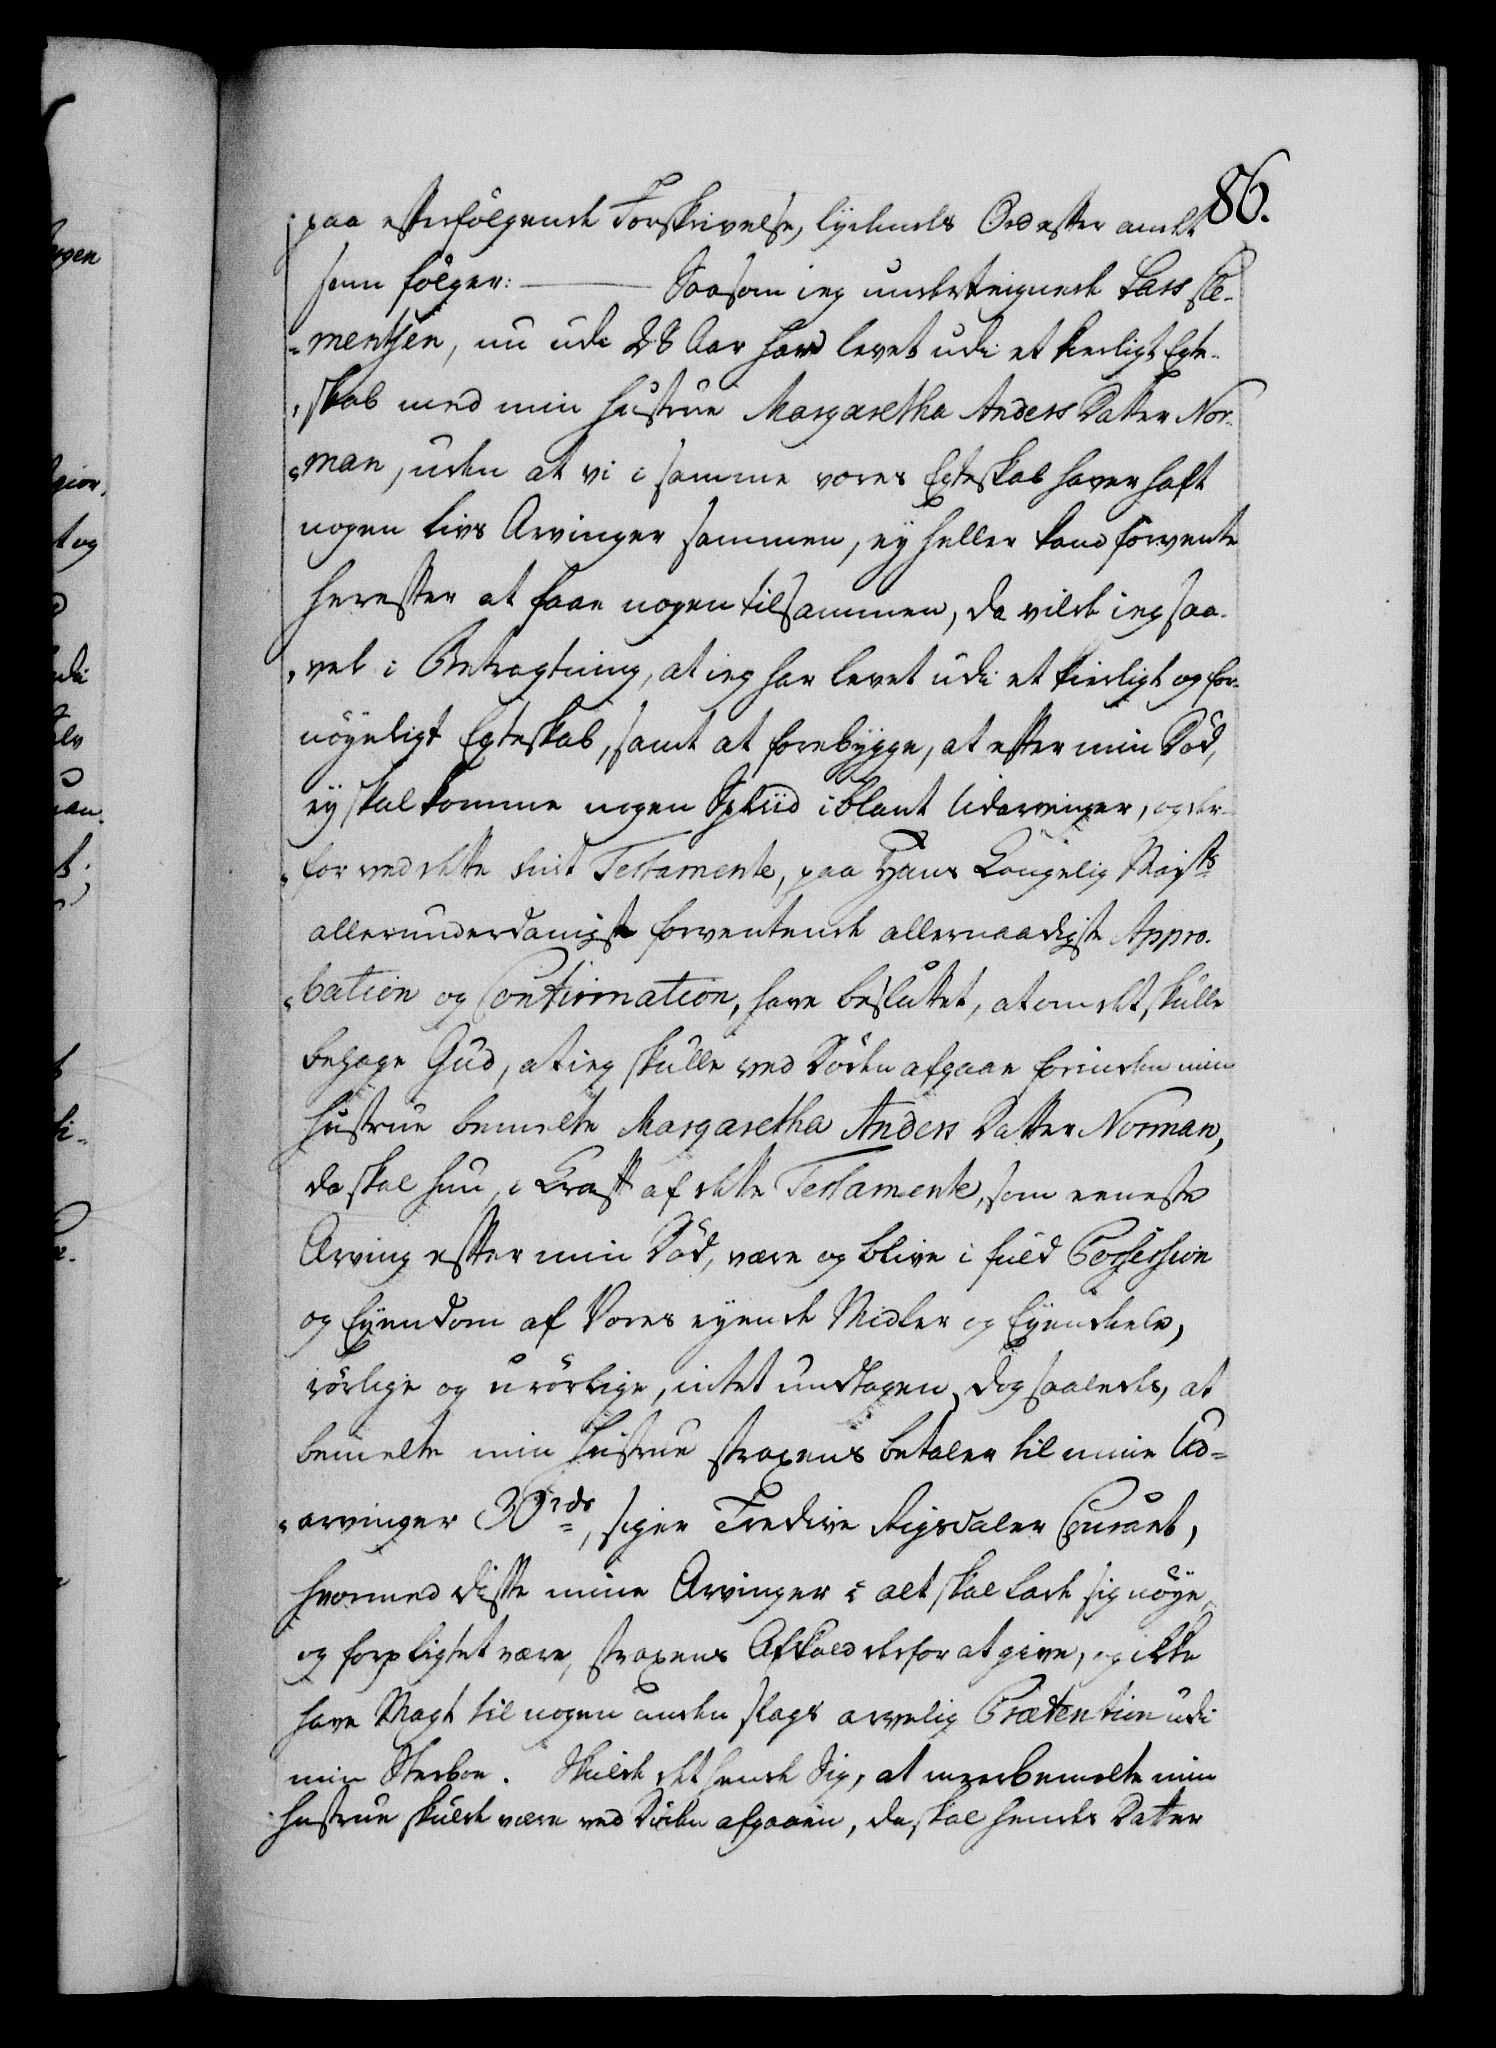 86.
paa efterfölgende Forskrivelse, lydende Ord efter andet
som fölger: Saasom ieg undertegnede Lars Cle-
mentsen, nu udi 28 Aar har levet udi et kierligt Egte-
skab med min Hustrue Margaretha Anders Datter Nor-
man, uden at vi i samme vores Egteskab haver haft
nogen Livs Arvinger sammen, ey heller kand forvente
herefter at faae nogen tilsammen, da vilde ieg saa-
vel i Betragtning, at ieg har levet udi et kierligt og for-
nöyeligt Egteskab, samt at forebygge, at efter min Död,
ey skal komme nogen Splid iblant Udarvinger, og der-
for ved dette mit Testamente, paa Hans Kongelig Mayts
allerunderdanigst forventende allernaadigste Appro-
bation og Confirmation, have besluttet, at om det skulle
behage Gud, at ieg skulle ved Döden afgaae forinden min
Hustrue bemelte Margaretha Anders Datter Norman,
da skal hun, i Kraft af dette Testamente, som eeneste
Arving efter min Död, være og blive i fuld Possession
og Eyendom af Vores eyende Midler og Eyendeele,
rörlige og urörlige, intet undtagen, dog saaledes, at
bemelte min Hustrue straxens betaler til mine Ud-
arvinger 30 rdr, siger Tredive Rigsdaler Courant,
hvormed disse mine Arvinger i alt skal lade sig nöye,
og forpligtet være, straxens Afkald derfor at give, og ikke
have Magt til nogen anden slags arvelig Prætention udi
min Sterboe. Skulde det hende Sig, at meerbemelte min
Hustrue skulde være ved Döden afgaaen, da skal hendes Datter